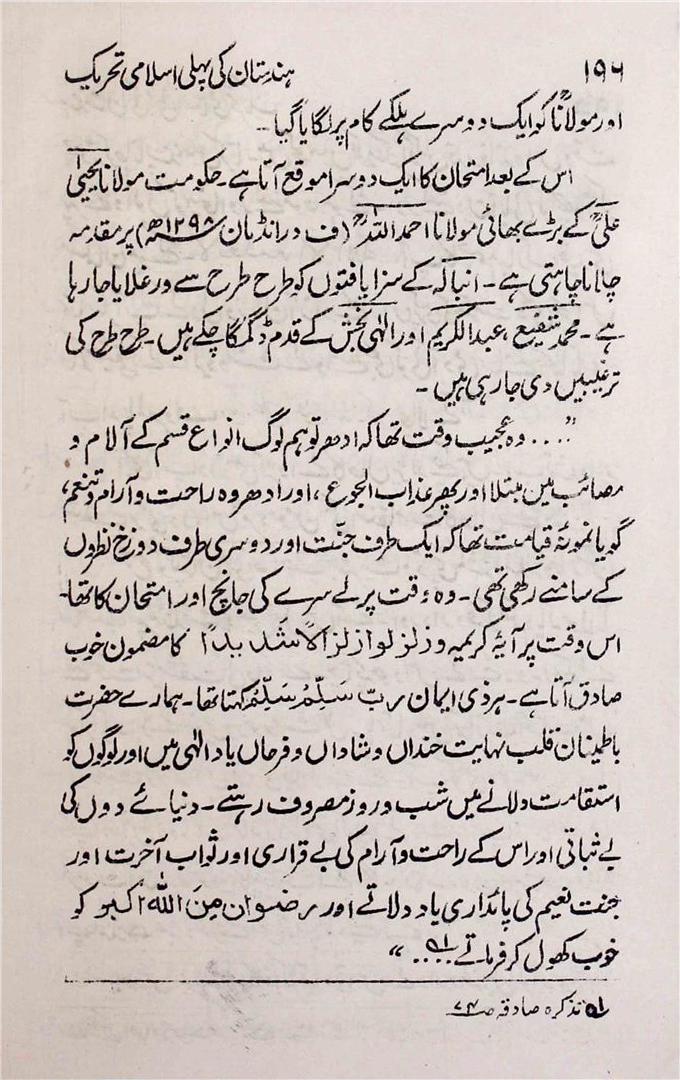 ۱۹۶ ہندستان کی پہلی اسلامی تحریک
اور مولاناؒ کو ایک دوسرے ہلکے کام پر لگایا گیا۔
اس کے بعد امتحان کا ایک دوسرا موقع آتا ہے۔ حکومت مولانا یحییٰ
علیؒ کے بڑے بھائی مولانا احمد اللہؒ (ف در انڈمان ۱۲۹۸ھ) پر مقدمہ
چلانا چاہتی ہے۔ انبالہ کے سزا یافتوں کو طرح طرح سے ورغلایا جا رہا
ہے۔ محمد شفیع، عبدالکریم اور الٰہی بخش کے قدم ڈگمگا چکے ہیں۔ طرح طرح کی
ترغیبیں دی جا رہی ہیں۔
”۔۔۔۔ وہ عجیب وقت تھا کہ ادھر تو ہم لوگ انواع قسم کے آلام و
مصائب میں مبتلا اور پھر عذاب الجوع، اور ادھر وہ راحت و آرام و تنعم،
گویا نمونۂ قیامت تھا کہ ایک طرف جنّت اور دوسری طرف دوزخ نظروں
کے سامنے رکھی تھی۔ وہ وقت پرلے سرے کی جانچ اور امتحان کا تھا۔
اس وقت پر آیۂ کریمہ وزلزلوا زلزالًا شدیدًا کا مضمون خوب
صادق آتا ہے۔ ہر ذی ایمان ربّ سَلِّمْ سَلِّمْ کہتا تھا۔ ہمارے حضرت
باطینان قلب نہایت خنداں و شاداں و فرحاں یاد الٰہی میں اور لوگوں کو
استقامت دلانے میں شب و روز مصروف رہتے۔ دنیائے دوں کی
بے ثباتی اور اس کے راحت و آرام کی بے قراری اور ثواب آخرت اور
جنت نعیم کی پائداری یاد دلاتے اور رضوان مِنَ اللہ اکبر کو
خوب کھول کر فرماتے لہ۔۔۔۔“
لہ تذکرہ صادقہ ص۷۴